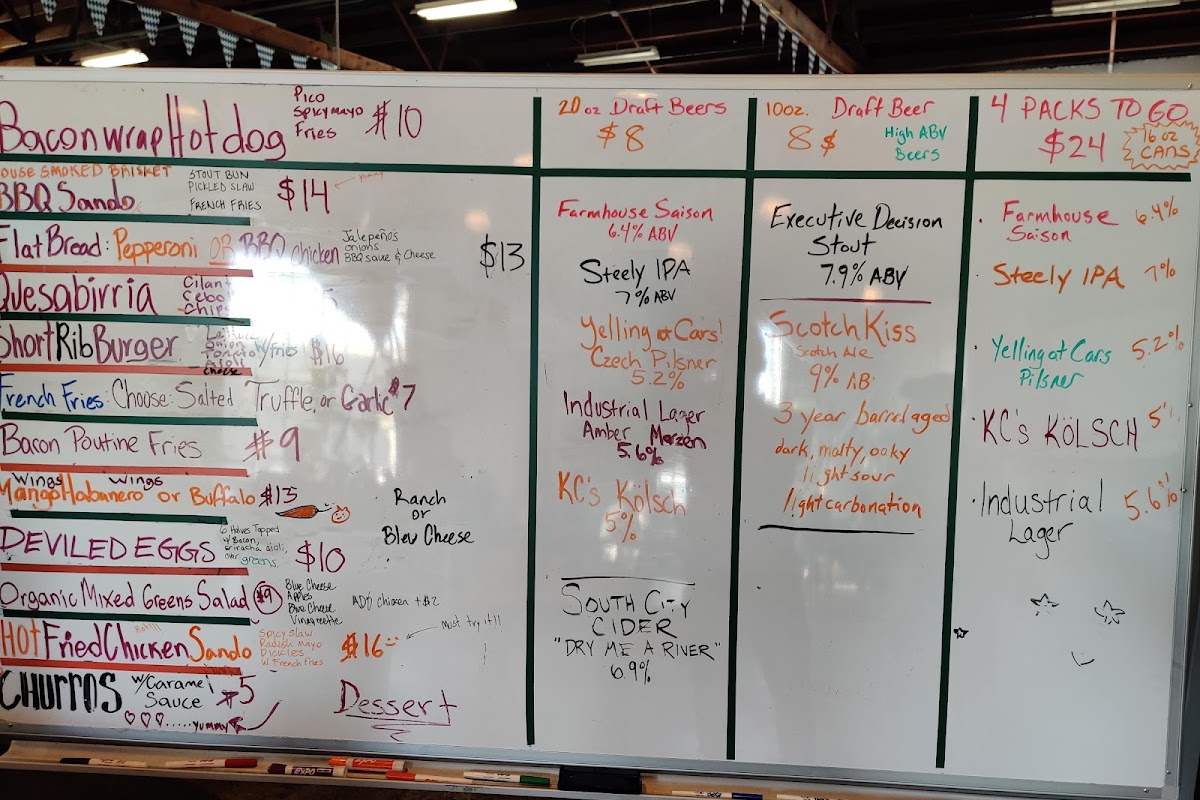 Bacon wrap Hot dog
Pico
Spicy mayo
Fries
$10
OUSE SMOKED BRISKET
BBQ Sando
STOUT BUN
PICKLED SLAW
FRENCH FRIES
$14
yummy
Flat Bread: Pepperoni OR BBQ Chicken
Jalepeño's
onions
BBQ sauce & Cheese
$13
Quesabirria
Cilant
Cebo
Chips
Short Rib Burger
Onion
Tomato
Aioli
Cheese
w/fries
$16
French Fries: Choose: Salted Truffle, or Garlic $7
Bacon Poutine Fries $9
Wings Wings
Mango Habanero or Buffalo $15
Ranch
or
Bleu Cheese
DEVILED EGGS
6 Halves Topped
w/ Bacon,
sriracha aioli,
over greens
$10
Organic Mixed Greens Salad $9
Blue Cheese
Apples
Blue Cheese
Vinaigrette
ADD chicken +$2
HOT Fried Chicken Sando
Spicy slaw
Radish mayo
Pickles
w French fries
$16
must try it!!
CHURROS
w/Caramel
Sauce
$5
.....yummy
Dessert
20 oz Draft Beers
$8
Farmhouse Saison
6.4% ABV
Steely IPA
7% ABV
Yelling at Cars!
Czech Pilsner
5.2%
Industrial Lager
Amber Marzen
5.6%
KC's Kölsch
5%
SOUTH CITY
CIDER
"DRY ME A RIVER"
6.9%
10oz. Draft Beer
8$
High ABV
Beers
Executive Decision
Stout
7.9% ABV
Scotch Kiss
Scotch Ale
9% AB
3 year barrel aged
dark, malty, oaky
light sour
light carbonation
4 PACKS TO GO
$24
16 oz
CANS
. Farmhouse
Saison
6.4%
Steely IPA 7%
Yelling at Cars
Pilsner
5.2%
· KC's KÖLSCH 5%
· Industrial
Lager
5.6%